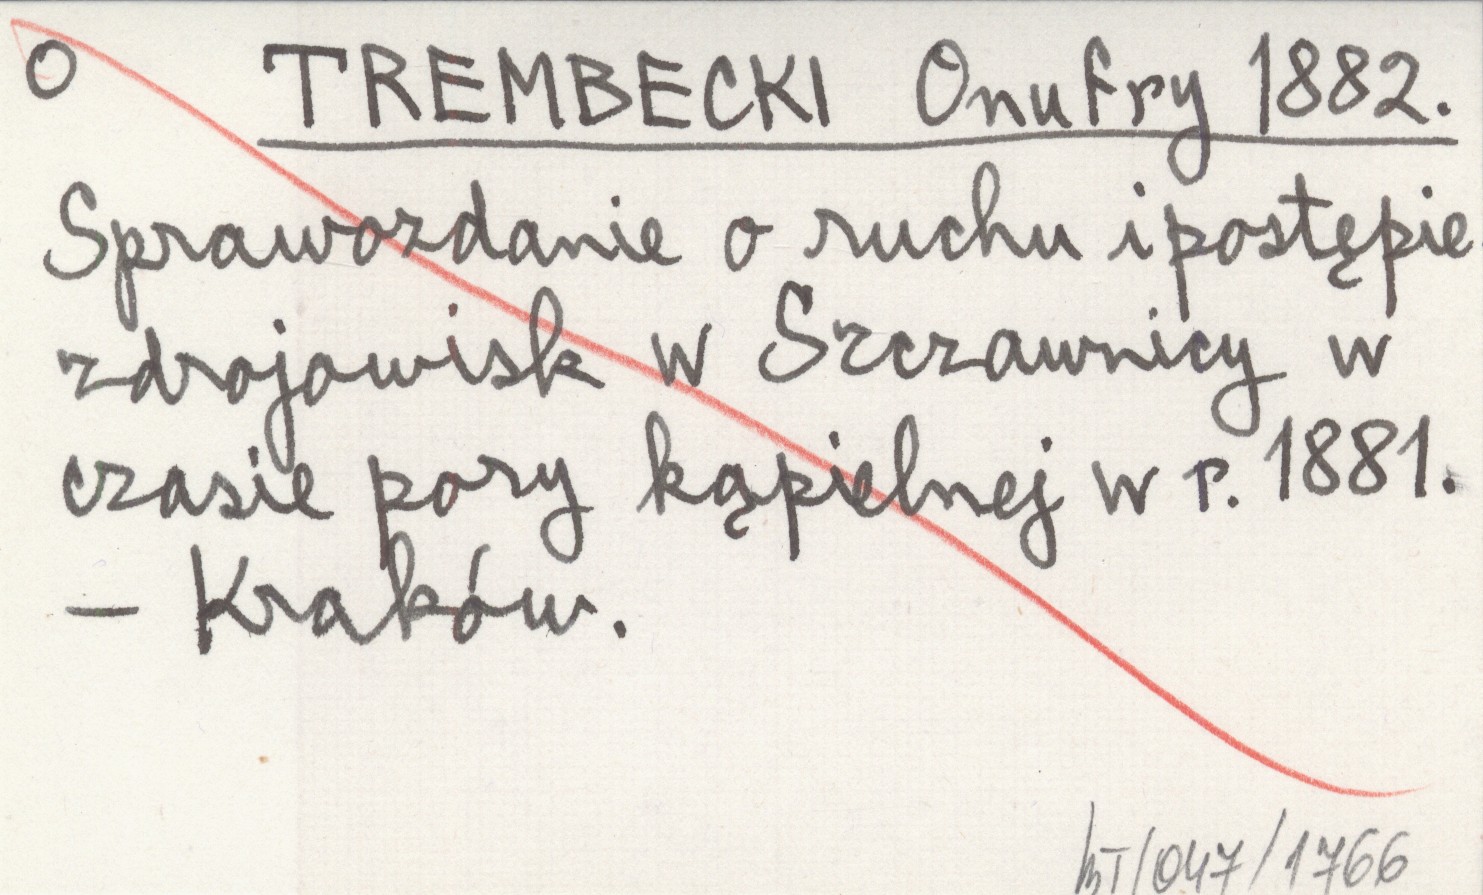 O TREMBECKI Onufry 1882.
Sprawozdanie o ruchu i postępie
zdrojowisk w Szczawnicy w
czasie pory kąpielnej w r. 1881.
— Kraków.
/047/1766